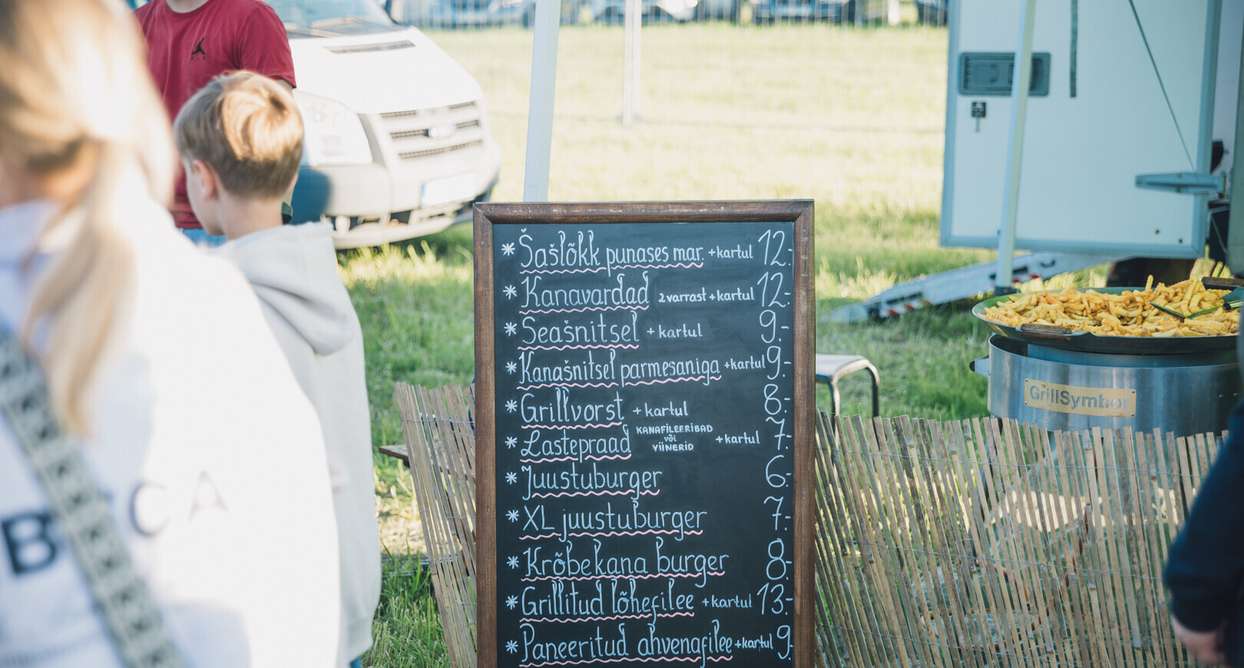 * Šašlõkk punases mar. +kartul 12.-
* Kanavardad 2 varrast + kartul 12.-
* Seašnitsel + kartul 9.-
* Kanašnitsel parmesaniga +kartul 9.-
* Grillvorst + kartul 8.-
* Lastepraad KANAFILEERIBAD või VIINERID + kartul 7.-
* Juustuburger 6.-
* XL juustuburger 7.-
* Krõbekana burger 8.-
* Grillitud lõhefilee + kartul 13.-
* Paneeritud ahvenafilee +kartul 9.-
GrillSymbol